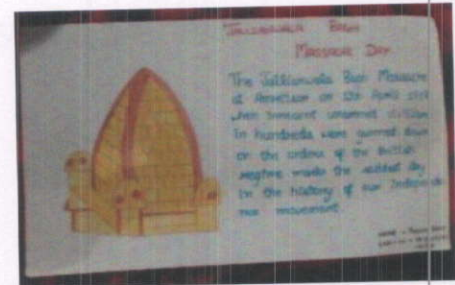 JALLIANWALA BAGH
MASSACRE DAY
The Jallianwala Bagh Massacre
at Amritsar on 13th April 1919
when innocent unarmed civilian
in hundreds were gunned down
on the orders of the British
regime marks the saddest day
in the history of our Independe
nce movement.
NAME -